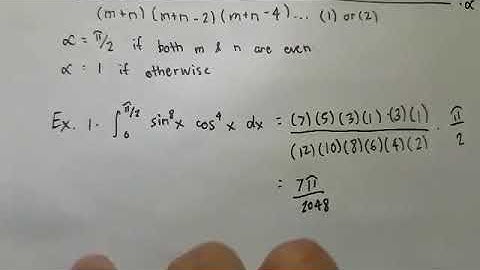 · α
(m+n) (m+n-2) (m+n-4) ... (1) or (2)
α = π/2 if both m & n are even
α = 1 if otherwise
Ex. 1. ∫₀^{π/2} sin⁸x cos⁴x dx = (7)(5)(3)(1)·(3)(1) / (12)(10)(8)(6)(4)(2) · π/2
= 7π / 2048